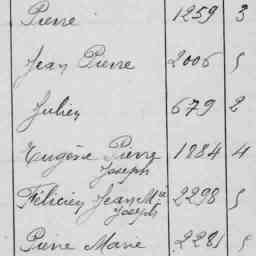 Pierre 1259 3
Jean Pierre 2006 5
Julien 679 2
Eugène Pierre 1884 4
Joseph
Félicien Jean Mie 2298 5
Joseph
Pierre Marie 2281 5